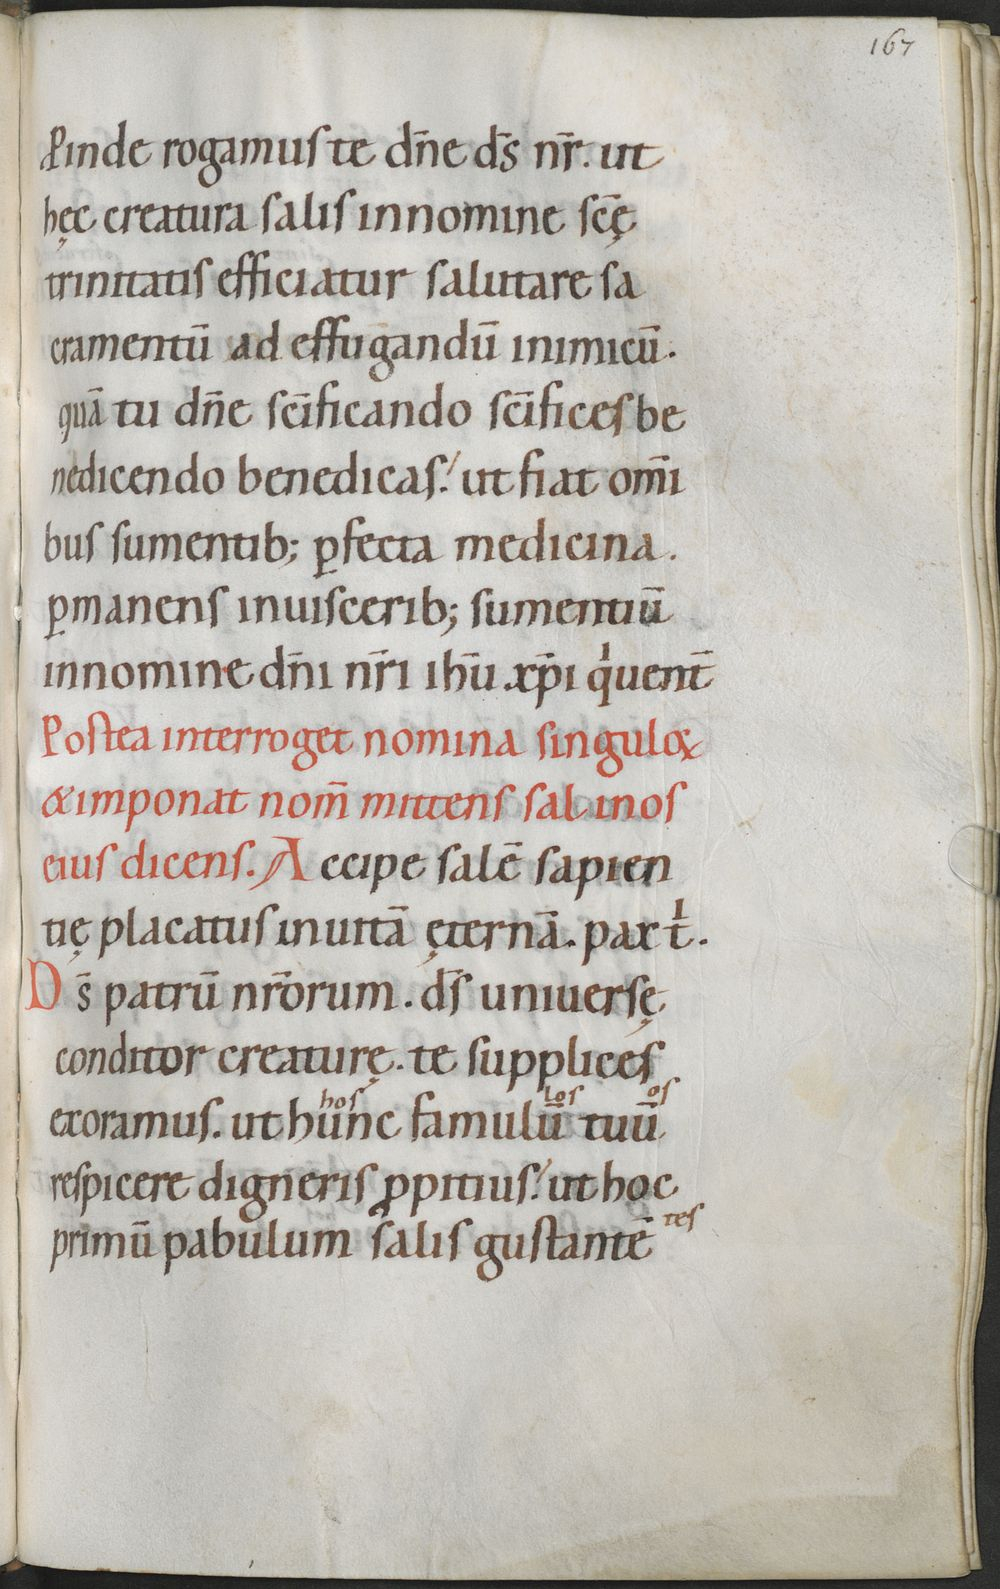 167
Pinde rogamus te dn̄e ds̄ nr̄. ut
hęc creatura salis innomine sc̄ę
trinitatis efficiatur salutare sa
cramentū ad effugandū inimicū.
quā tu dn̄e sc̄ificando sc̄ifices be
nedicendo benedicas. ut fiat om̄i
bus sumentib; ꝑfecta medicina.
ꝑmanens inuiscerib; sumentiū
innomine dn̄i nr̄i ihū xp̄i qͥ uent̄
Postea interroget nomina singuloꝝ
&imponat nom̄ mittens sal inos
eius dicens. Accipe salē sapien
tię placatus inuitā ęternā. pax tͥ.
Ds̄ patrū nr̄orum. ds̄ uniuersę
conditor creaturę. te supplices
hos los os
exoramus. ut hunc famulū tuū
respicere digneris ꝓpitius. ut hoc
primū pabulum salis gustantē tes